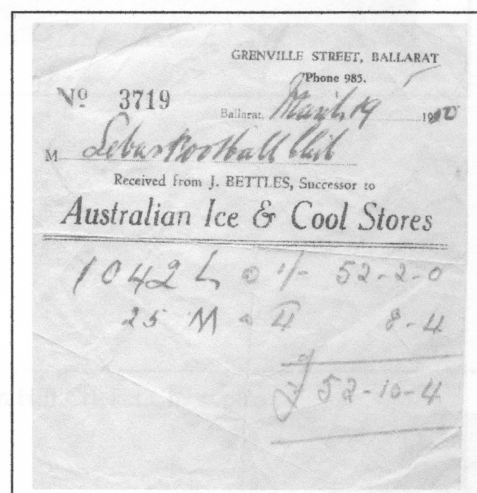 GRENVILLE STREET, BALLARAT
'Phone 985.
Nº 3719
Ballarat, March 19 19
M Football Club
Received from J. BETTLES, Successor to
Australian Ice & Cool Stores
1042 L @ 1/- 52-2-0
25 M @ 4 8-4
£ 52-10-4